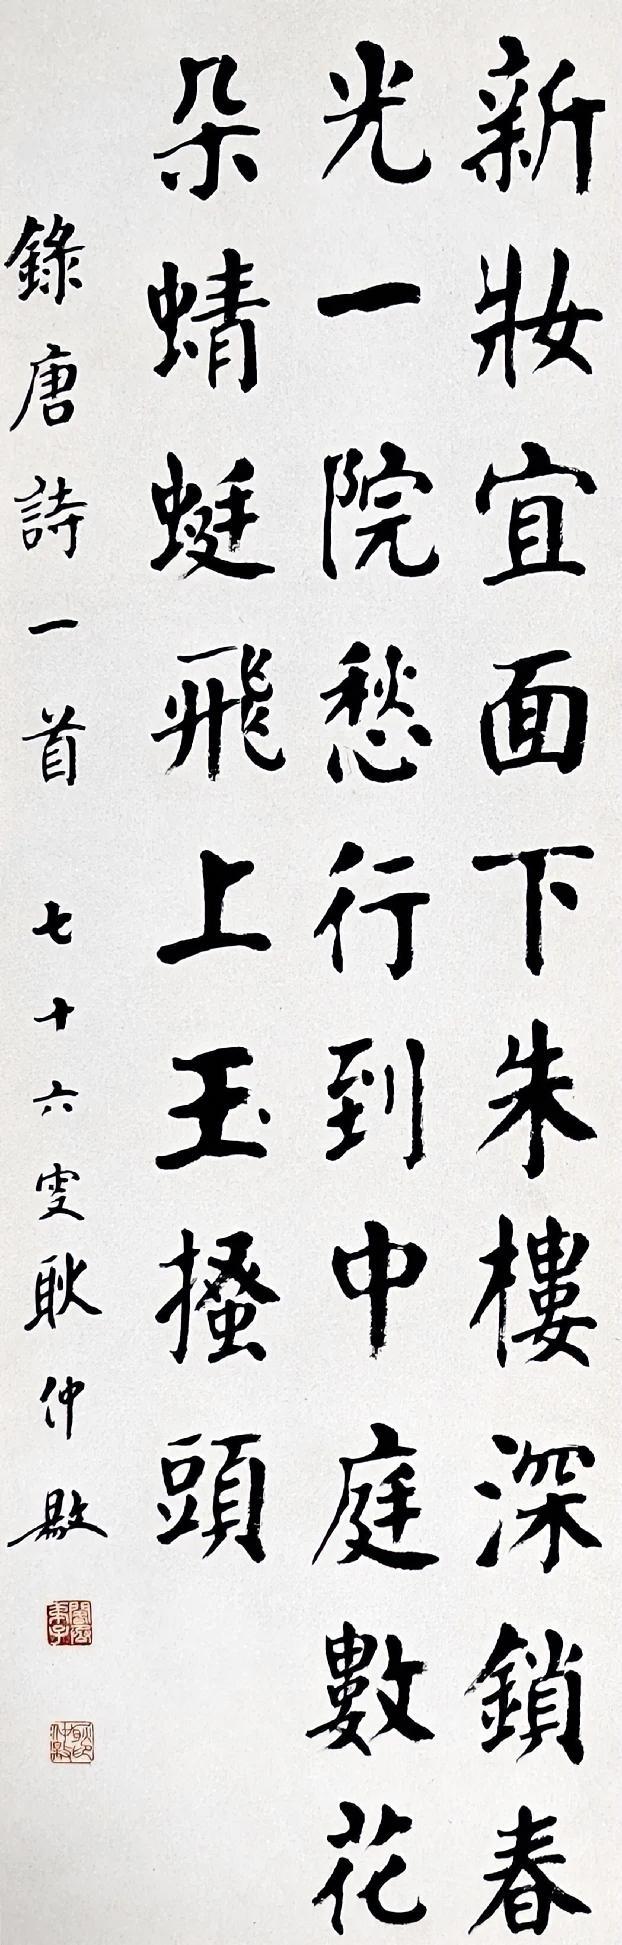 新妝宜面下朱樓深鎖春
光一院愁行到中庭數花
朵蜻蜓飛上玉搔頭
錄唐詩一首 七十六叟耿仲敭